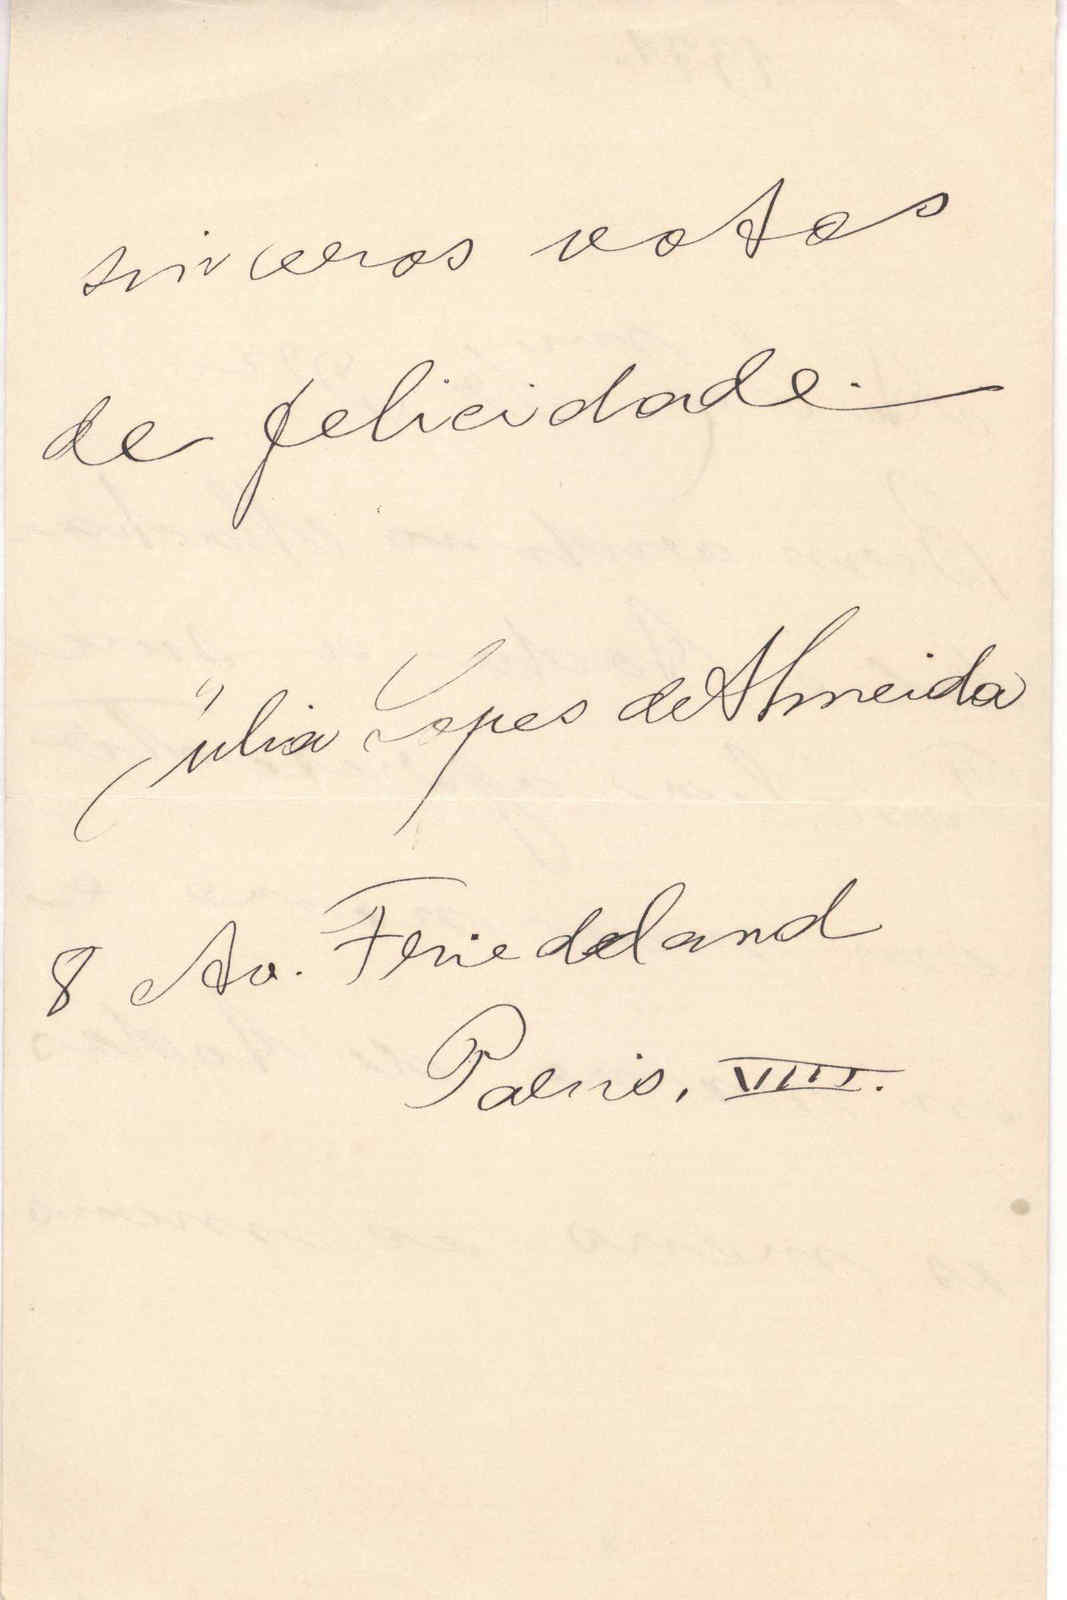 sinceros votos
de felicidade.
Júlia Lopes de Almeida
8 Av. Friedeland
Paris, VIII.